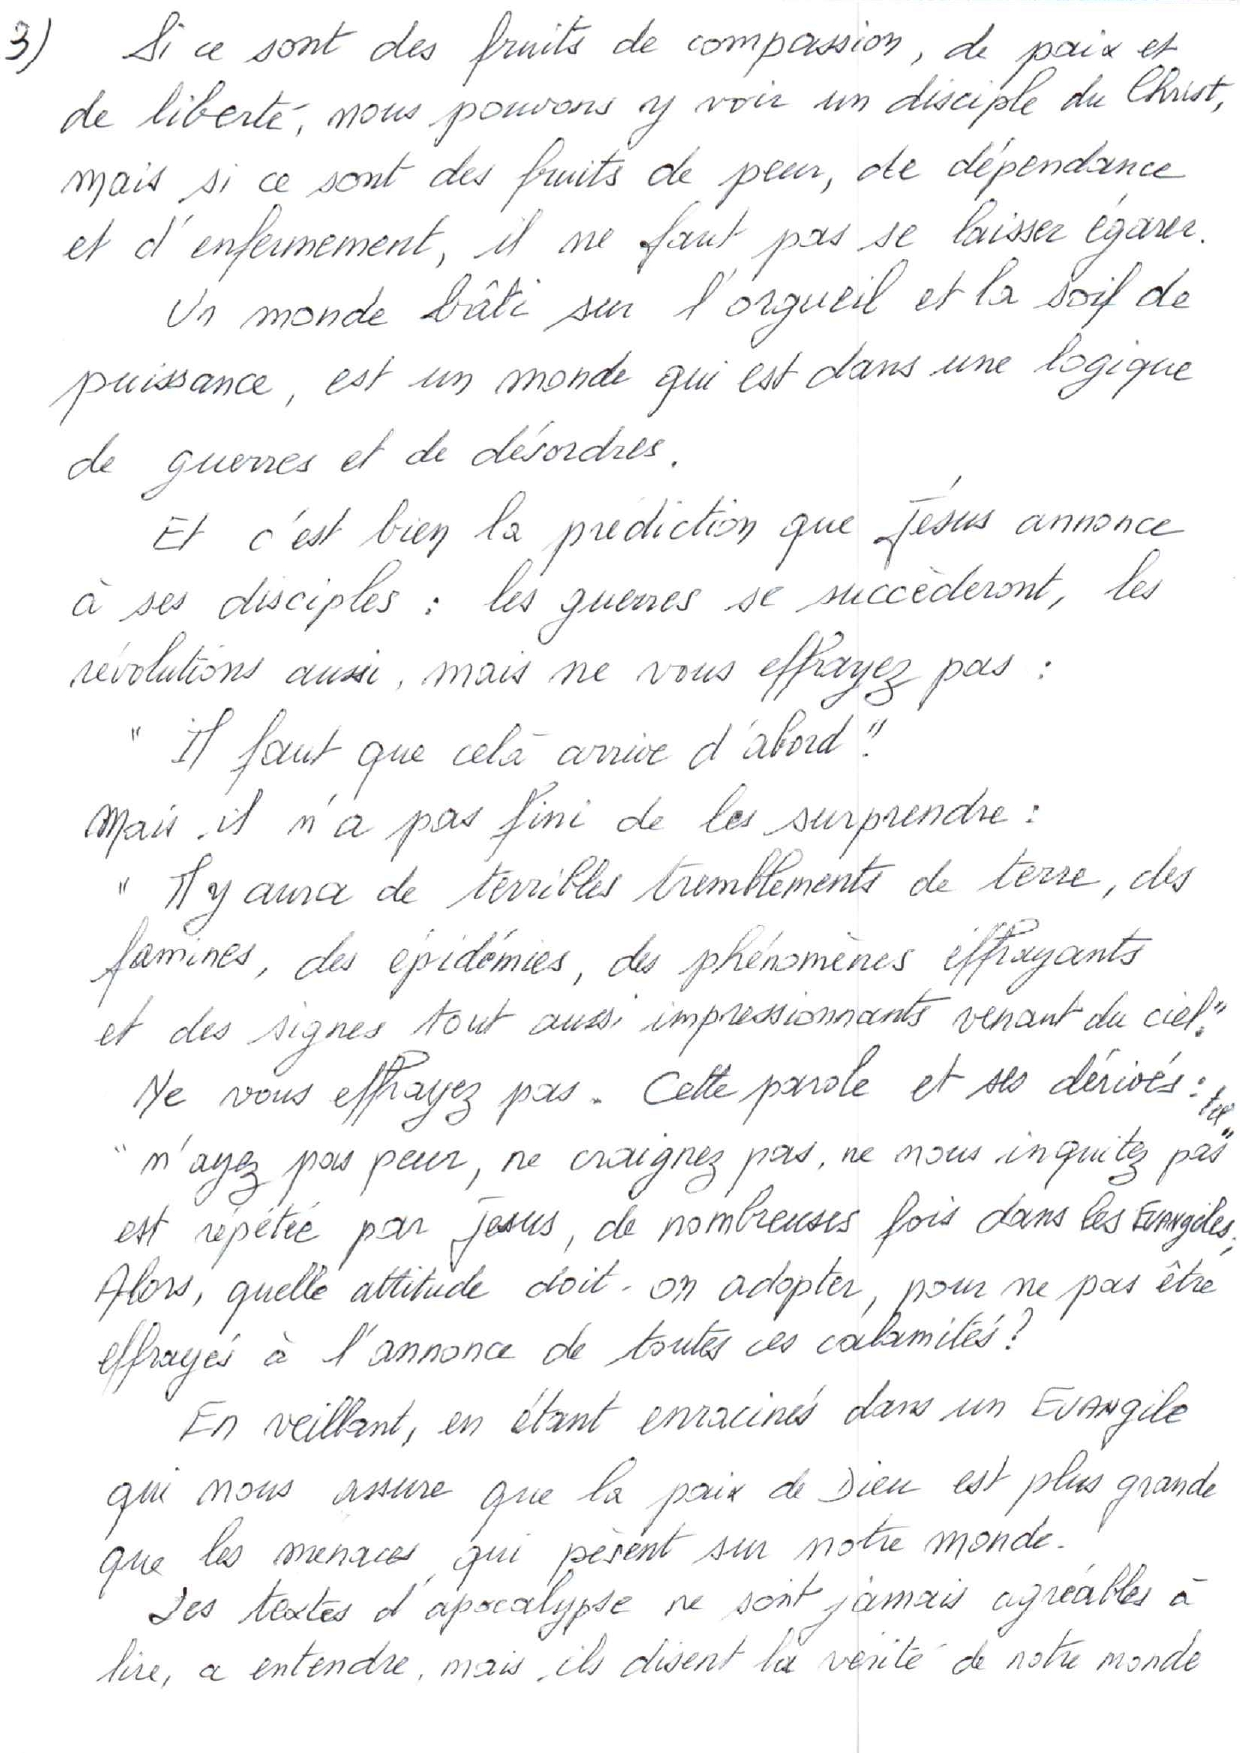 3) Si ce sont des fruits de compassion, de paix et
de liberté, nous pouvons y voir un disciple du Christ,
mais si ce sont des fruits de peur, de dépendance
et d'enfermement, il ne faut pas se laisser égarer.
Un monde bâti sur l'orgueil et la soif de
puissance, est un monde qui est dans une logique
de guerres et de désordres.
Et c'est bien la prédiction que Jésus annonce
à ses disciples : les guerres se succèderont, les
révolutions aussi, mais ne vous effrayez pas :
" Il faut que celà arrive d'abord".
Mais il n'a pas fini de les surprendre :
" Il y aura de terribles tremblements de terre, des
famines, des épidémies, des phénomènes éffrayants
et des signes tout aussi impressionnants venant du ciel."
Ne vous effrayez pas. Cette parole et ses dérivés :
" n'ayez pas peur, ne craignez pas, ne nous inquitez pas"
est répétée par Jésus, de nombreuses fois dans les EVANgiles.
Alors, quelle attitude doit-on adopter, pour ne pas être
effrayés à l'annonce de toutes ces calamités ?
En veillant, en étant enracinés dans un EVANgile
qui nous assure que la paix de Dieu est plus grande
que les menaces qui pèsent sur notre monde.
Les textes d'apocalypse ne sont jamais agréables à
lire, a entendre, mais ils disent la vérité de notre monde